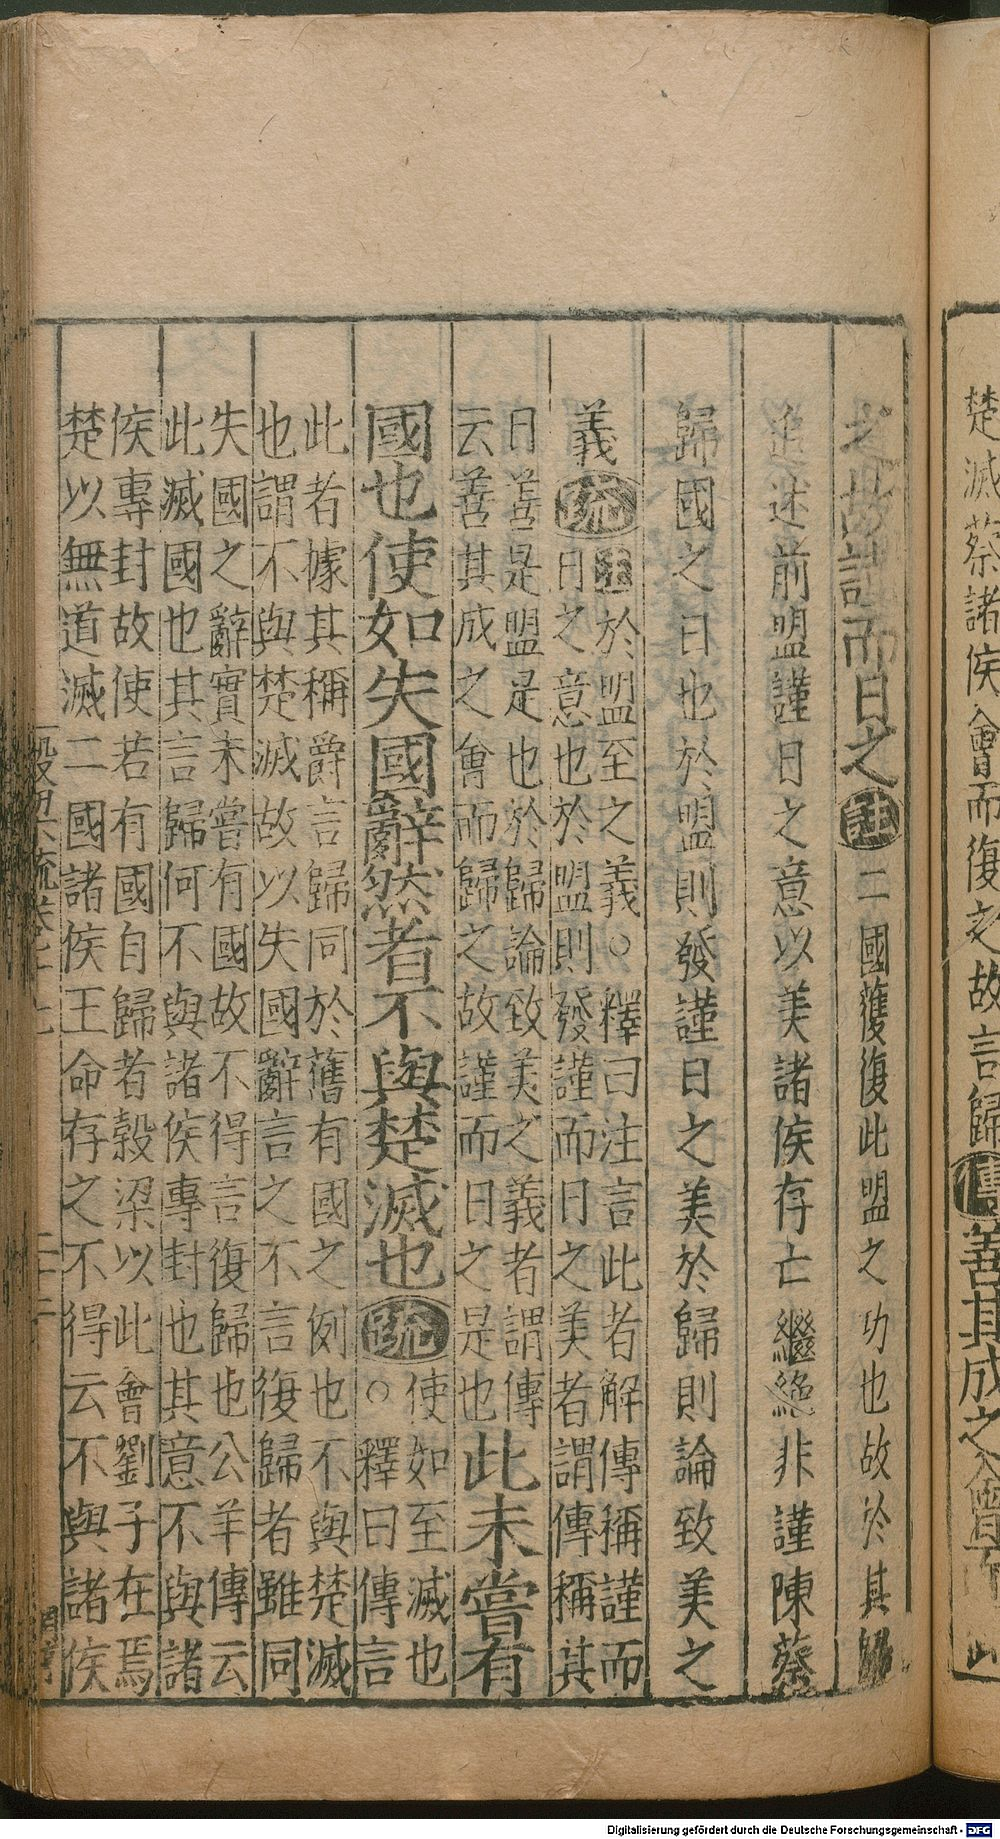 楚滅蔡諸侯會而復之故言歸傳善其成之會而
之故謹而日之注二國獲復此盟之功也故於其歸
追述前盟謹日之意以美諸侯存亡繼絕非謹陳蔡
歸國之日也於盟則發謹日之美於歸則論致美之
義疏注於盟至之義○釋曰注言此者解傳稱謹而
日之意也於盟則發謹而日之美者謂傳稱其
日善是盟是也於歸論致美之義者謂傳
云善其成之會而歸之故謹而日之是也此未嘗有
國也使如失國辭然者不與楚滅也疏使如至滅也
○釋曰傳言
此者據其稱爵言歸同於舊有國之例也不與楚滅
也謂不與楚滅故以失國辭言之不言復歸者雖同
失國之辭實未嘗有國故不得言復歸也公羊傳云
此滅國也其言歸何不與諸侯專封也其意不與諸
侯專封故使若有國自歸者榖梁以此會劉子在焉
楚以無道滅二國諸侯王命存之不得云不與諸侯
二十二
Digitalisierung gefördert durch die Deutsche Forschungsgemeinschaft - DFG